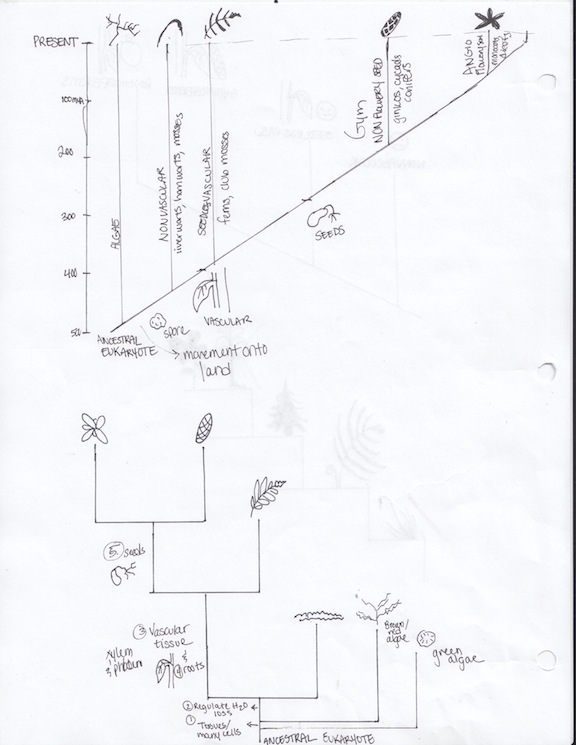 PRESENT
100mya
200
300
400
500
ALGAE
NONVASCULAR
liverworts, hornworts, mosses
SEEDLESS VASCULAR
ferns, club mosses
Gym
NON FLOWERY SEED
ginkos, cycads
conifers
ANGIO
flowery SM
monocots,
dicots
SEEDS
VASCULAR
spore
ANCESTRAL
EUKARYOTE
movement onto
land
⑤ seeds
③ Vascular
tissue
xylem
& phloem
&
④ roots
② Regulate H₂O
loss
① Tissues/
many cells
Brown/
red
algae
green
algae
ANCESTRAL EUKARYOTE